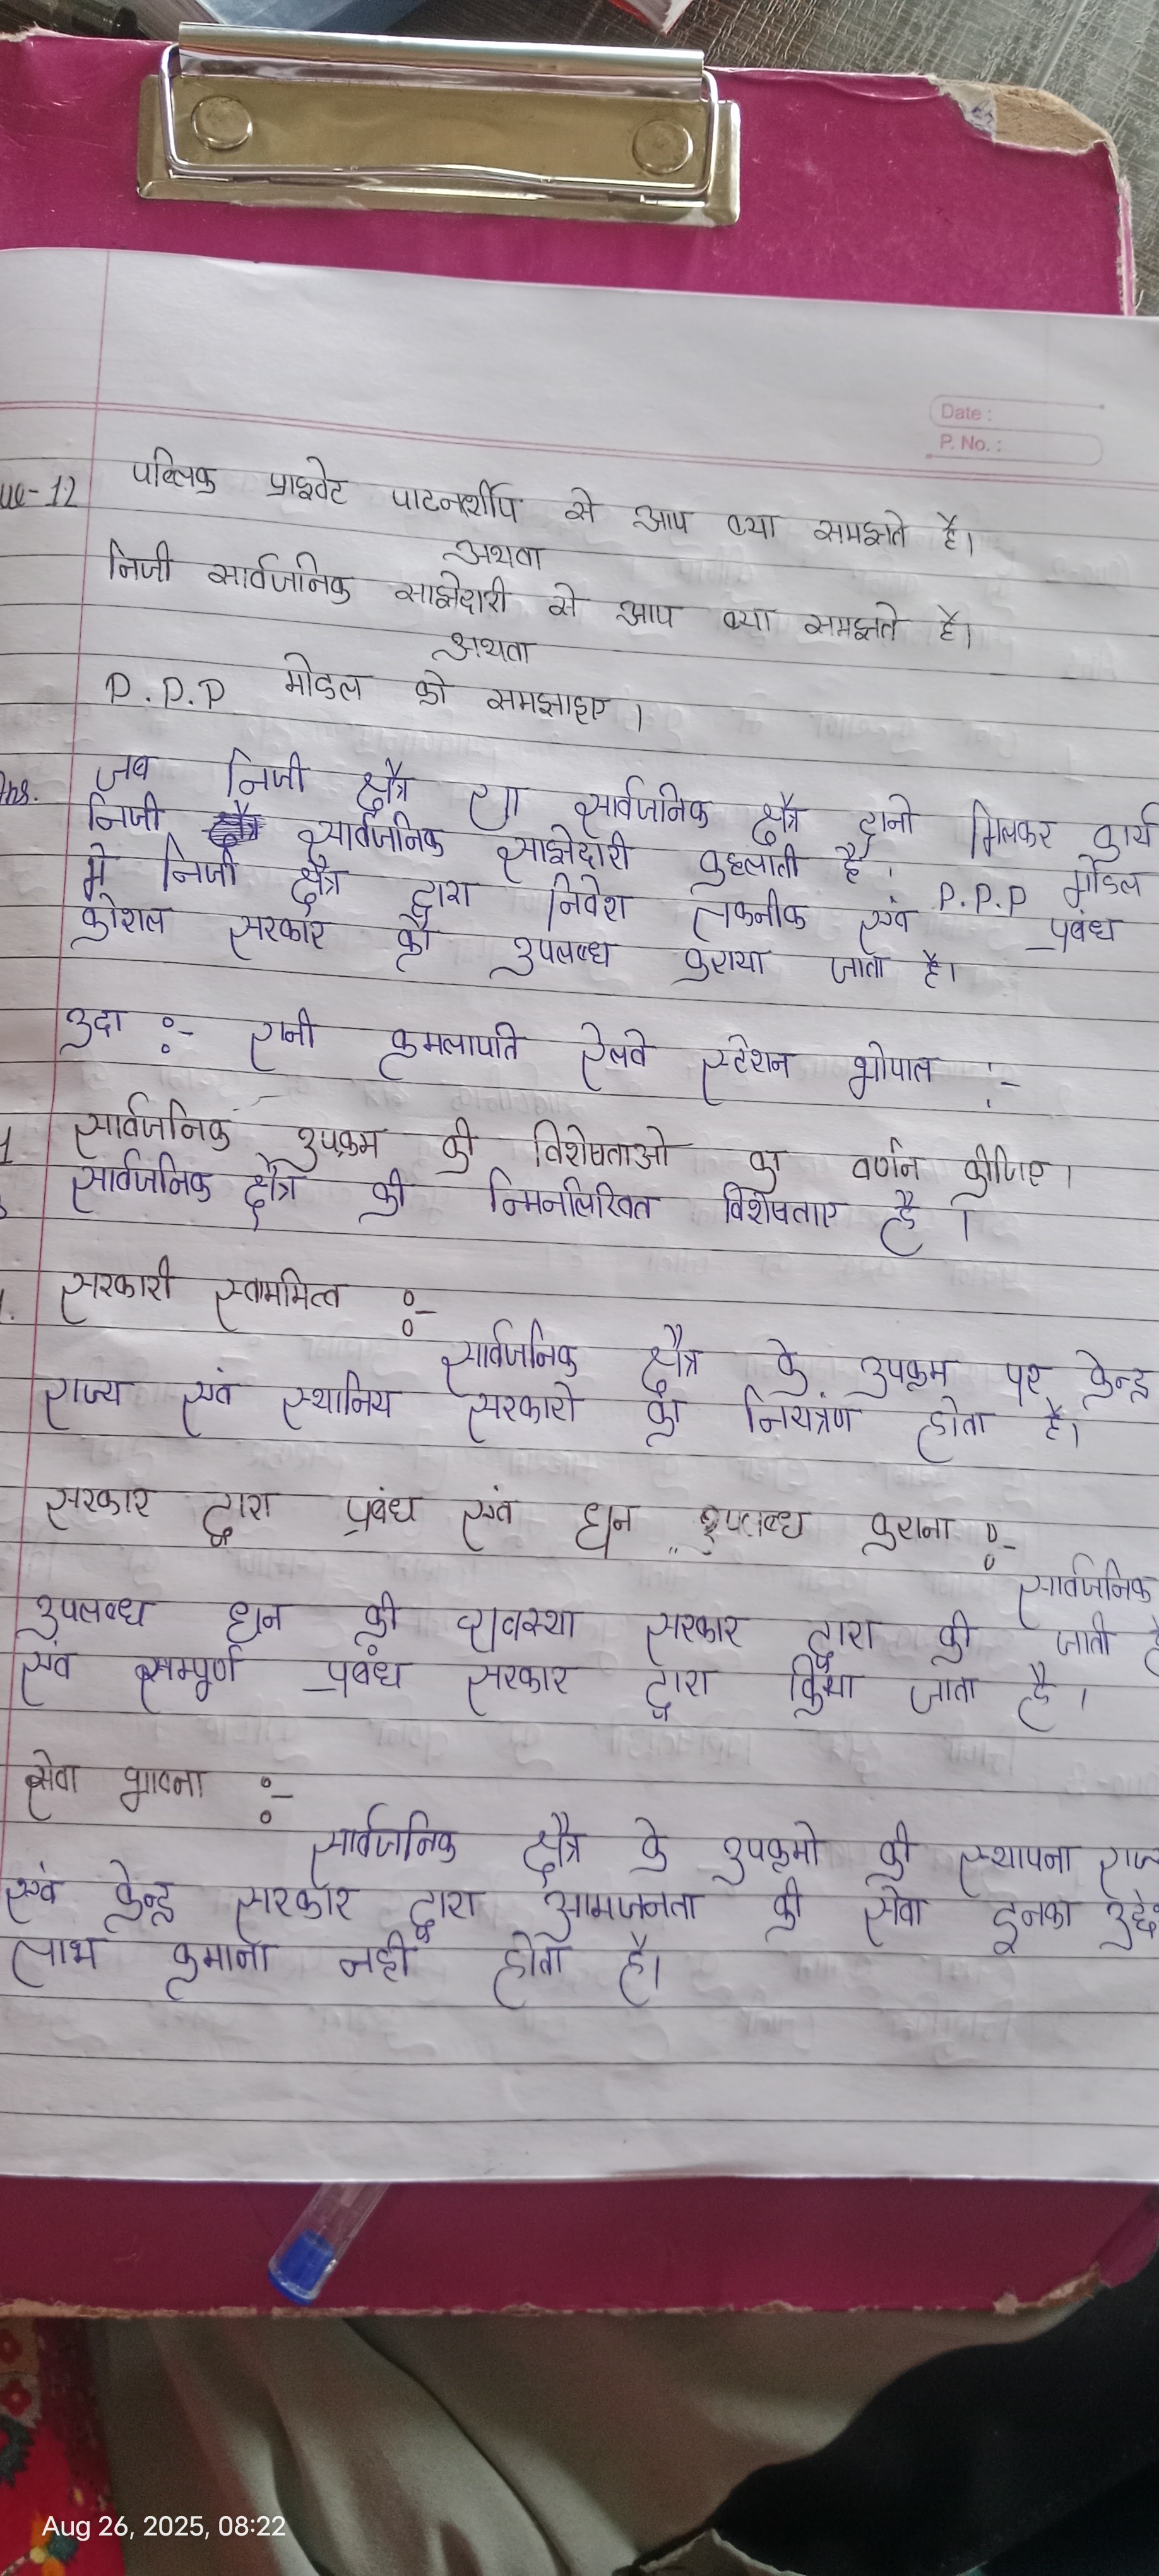 Date :
P. No. :
Que-12 पब्लिक प्राइवेट पाटनर्शीप से आप क्या समझते है।
अथवा
निजी सार्वजनिक साझेदारी से आप क्या समझते है।
अथवा
P.P.P मोडल को समझाइए।
Ans. जब निजी क्षैत्र सार्वजनिक क्षैत्र दोनो मिलकर कार्य
निजी सार्वजनिक साझेदारी कहलाती है। P.P.P मॉडल
मे निजी क्षैत्र द्वारा निवेश तकनीक एवं प्रबंध
कौशल सरकार को उपलब्ध कराया जाता है।
उदा :- रानी कमलापति रेलवे स्टेशन भोपाल :-
1 सार्वजनिक उपक्रम की विशेषताओ का वर्णन कीजिए।
सार्वजनिक क्षैत्र की निम्नलिखित विशेषताए है।
सरकारी स्वाममित्व :-
सार्वजनिक क्षैत्र के उपक्रम पर केन्द्र
राज्य एवं स्थानिय सरकारो का नियंत्रण होता है।
सरकार द्वारा प्रबंध एवं धन उपलब्ध कराना :-
सार्वजनिक
उपलब्ध धन की व्यवस्था सरकार द्वारा की जाती है
एवं सम्पूर्ण प्रबंध सरकार द्वारा किया जाता है।
सेवा भावना :-
सार्वजनिक क्षैत्र के उपक्रमो की स्थापना राज्
एवं केन्द्र सरकार द्वारा आमजनता की सेवा इनका उद्दे
लाभ कमाना नही होता है।
Aug 26, 2025, 08:22